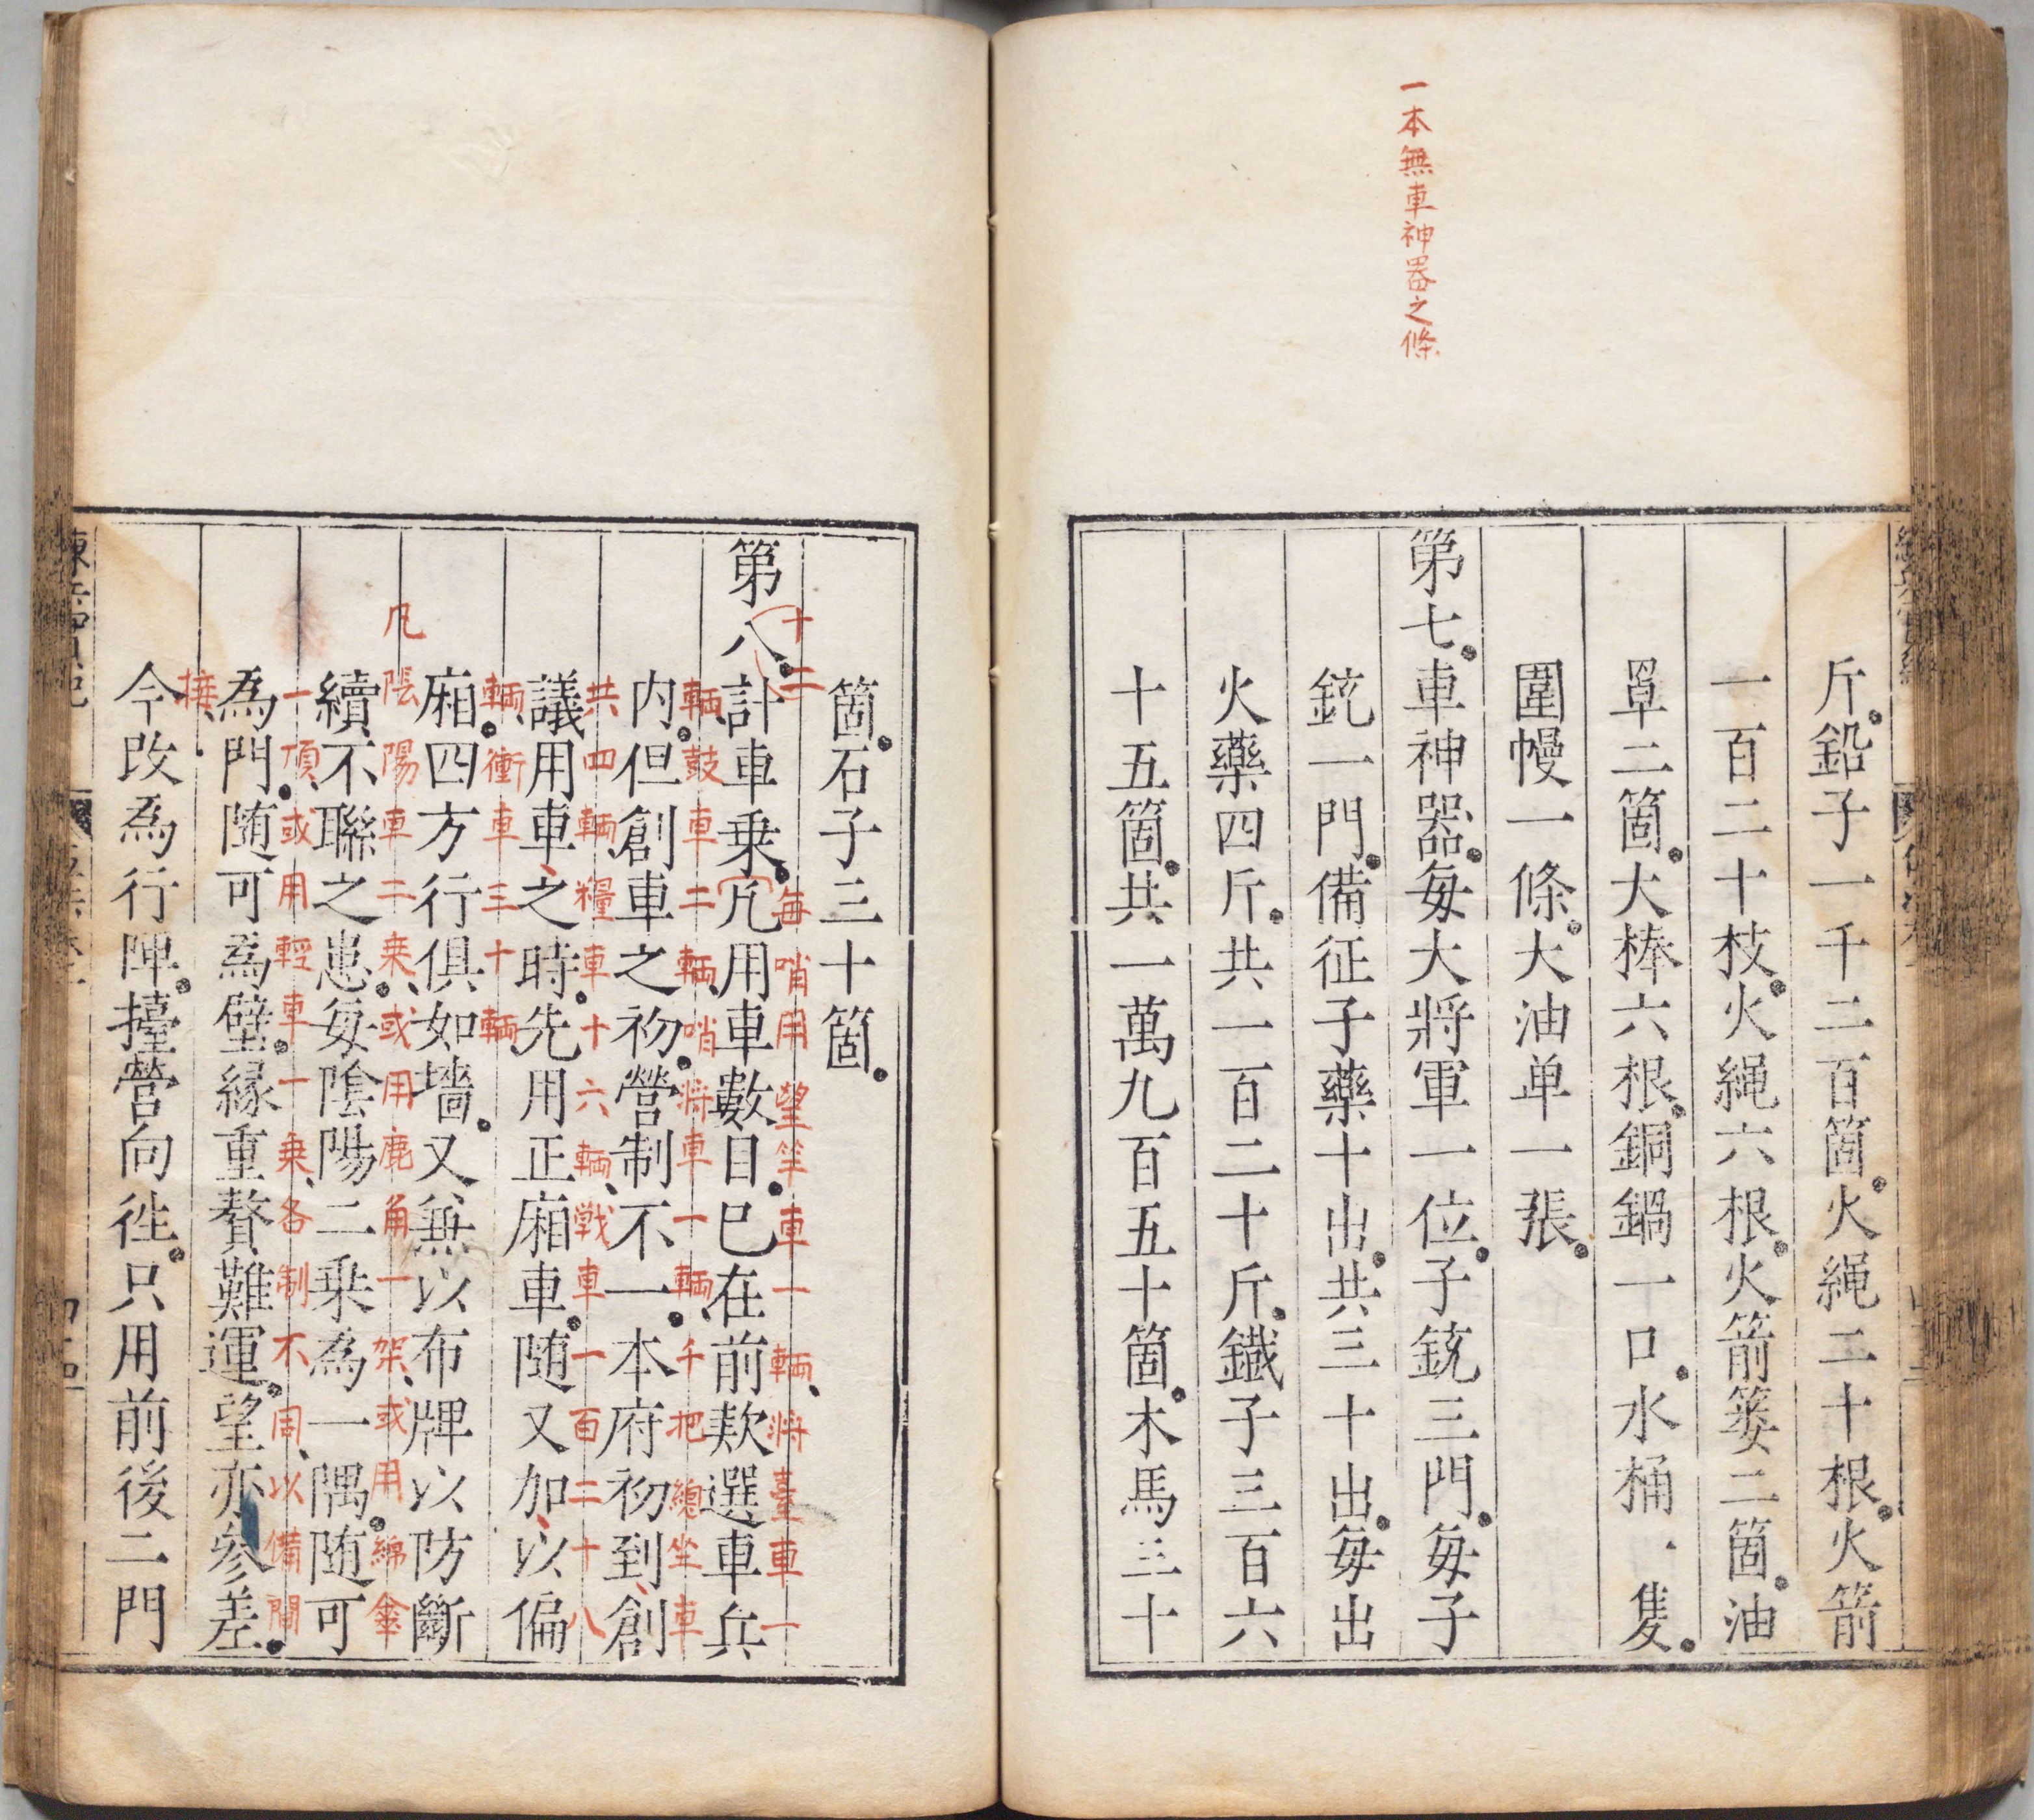 一本無車神器之條
斤鉛子一千二百箇火繩二十根火箭
一百二十枝火繩六根火箭簍二箇油
罩二箇大棒六根銅鍋一口水桶一隻
圍幔一條大油单一張
第七車神器每大將軍一位子銃三門每子
銃一門備征子藥十出共三十出每出
火藥四斤共一百二十斤鐵子三百六
十五箇共一萬九百五十箇木馬三十
箇石子三十箇
第八計車乗凢用車數目已在前款選車兵
十二
每哨用望竿車一輛將臺車一
内但創車之初營制不一本府初到創
輛鼓車二輛哨將車一輛千把總坐車
議用車之時先用正廂車随又加以偏
共四輛糧車十六輛戰車一百二十八
廂四方行俱如墻又無以布牌以防斷
輛衝車三十輛
續不聯之患每陰陽二乗為一隅随可
凡陰陽車二乗或用鹿角一架或用綿傘
為門随可為壁緣重贅難運望亦參差
一頂或用輕車一乗各制不同以備間
今改為行陣擡營向徃只用前後二門
接